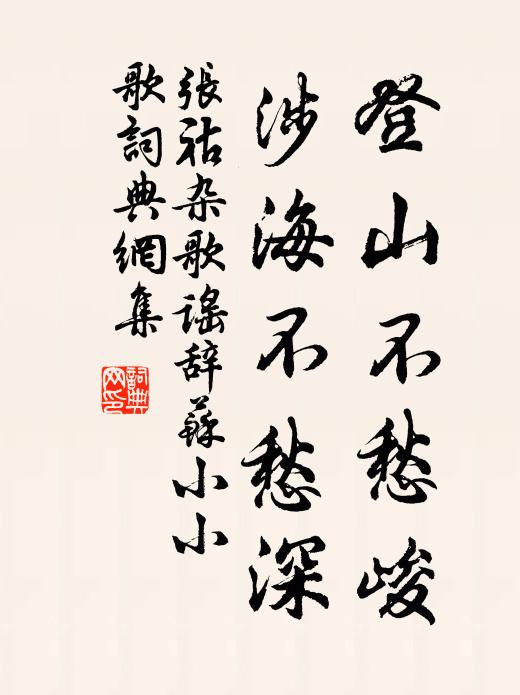 登山不愁峻
涉海不愁深
張祜杂歌謠辞蘇小小
歌詞典網集
詞典网印